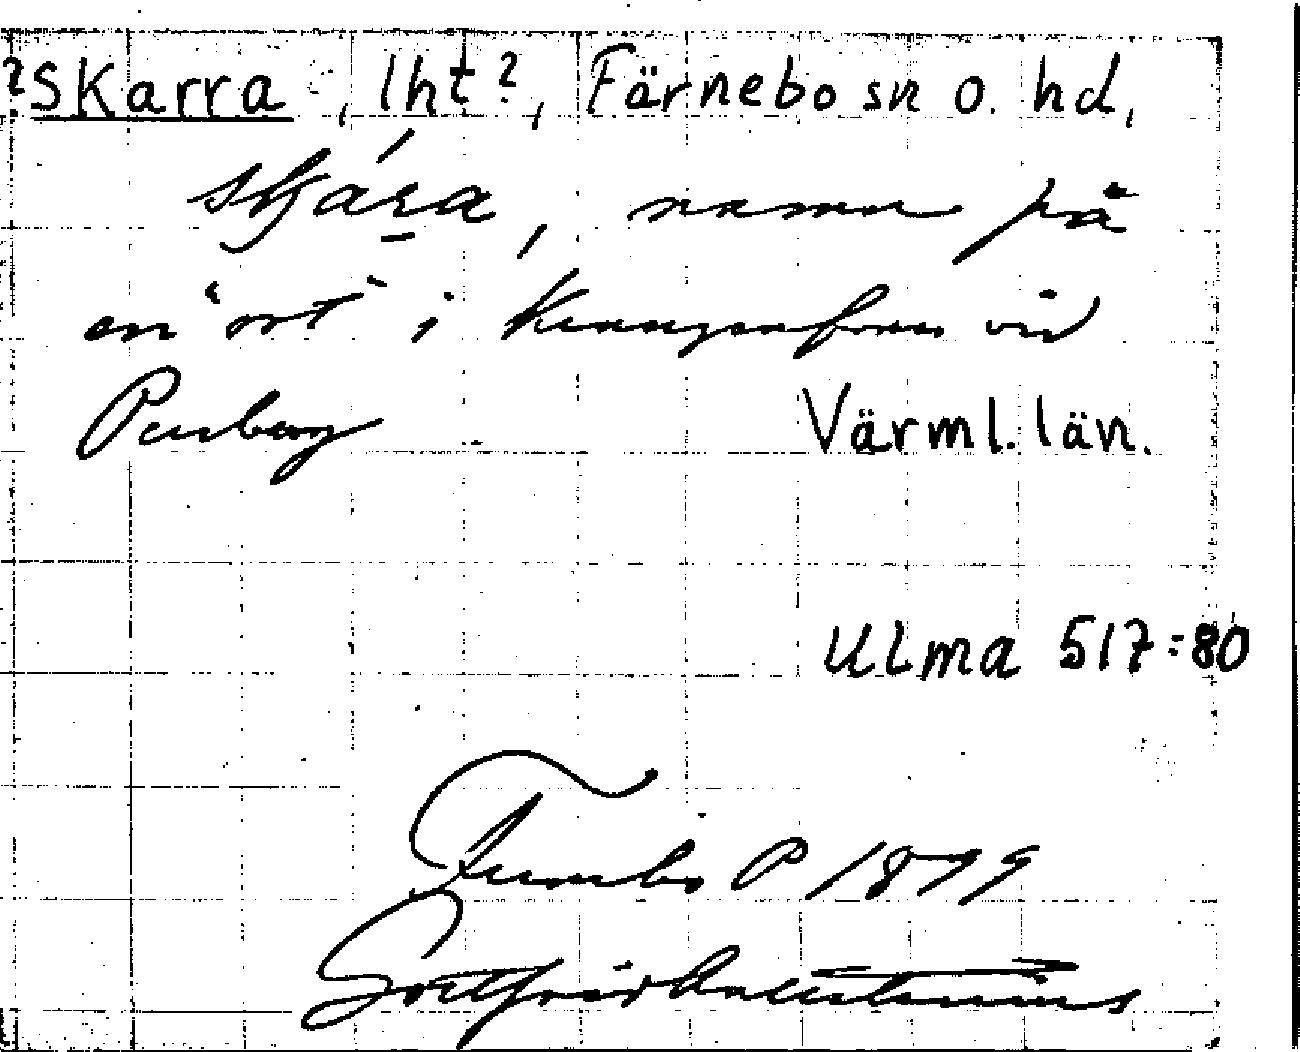 ?Skarra, lht?, Färnebo sn o. hd,
skára, namn på
en "ort" i Kungsgrufvan vid
Persberg Värml. län.
Ulma 517:80
Fernebo P 1879
Gottfrid Kallstenius